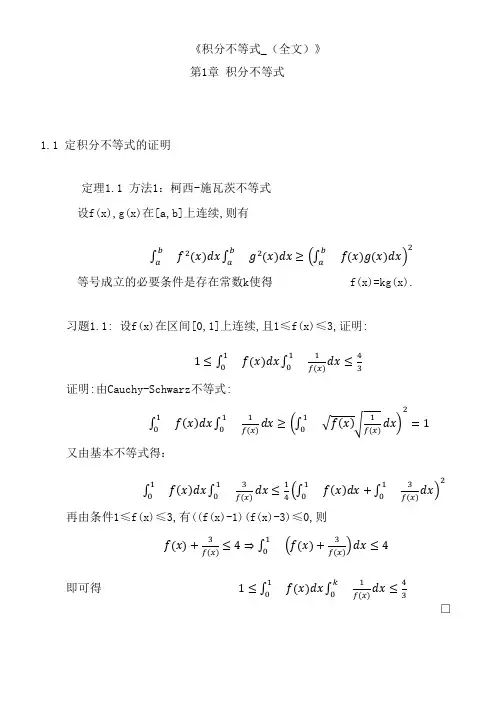 《积分不等式_(全文)》
第1章 积分不等式
1.1 定积分不等式的证明
定理1.1 方法1：柯西-施瓦茨不等式
设f(x),g(x)在[a,b]上连续,则有
∫_a^b f²(x)dx∫_a^b g²(x)dx ≥ (∫_a^b f(x)g(x)dx)²
等号成立的必要条件是存在常数k使得 f(x)=kg(x).
习题1.1: 设f(x)在区间[0,1]上连续,且1≤f(x)≤3,证明:
1 ≤ ∫_0^1 f(x)dx∫_0^1 1/f(x) dx ≤ 4/3
证明:由Cauchy-Schwarz不等式:
∫_0^1 f(x)dx∫_0^1 1/f(x) dx ≥ (∫_0^1 √f(x) √(1/f(x)) dx)² = 1
又由基本不等式得:
∫_0^1 f(x)dx∫_0^1 3/f(x) dx ≤ 1/4 (∫_0^1 f(x)dx + ∫_0^1 3/f(x) dx)²
再由条件1≤f(x)≤3,有((f(x)-1)(f(x)-3)≤0,则
f(x) + 3/f(x) ≤ 4 ⇒ ∫_0^1 (f(x) + 3/f(x)) dx ≤ 4
即可得 1 ≤ ∫_0^1 f(x)dx∫_0^k 1/f(x) dx ≤ 4/3
□